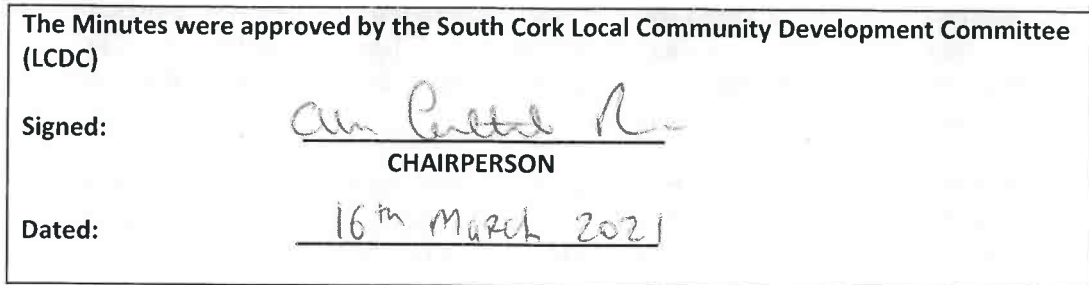 The Minutes were approved by the South Cork Local Community Development Committee
(LCDC)
Signed:
CHAIRPERSON
Dated: 16th March 2021